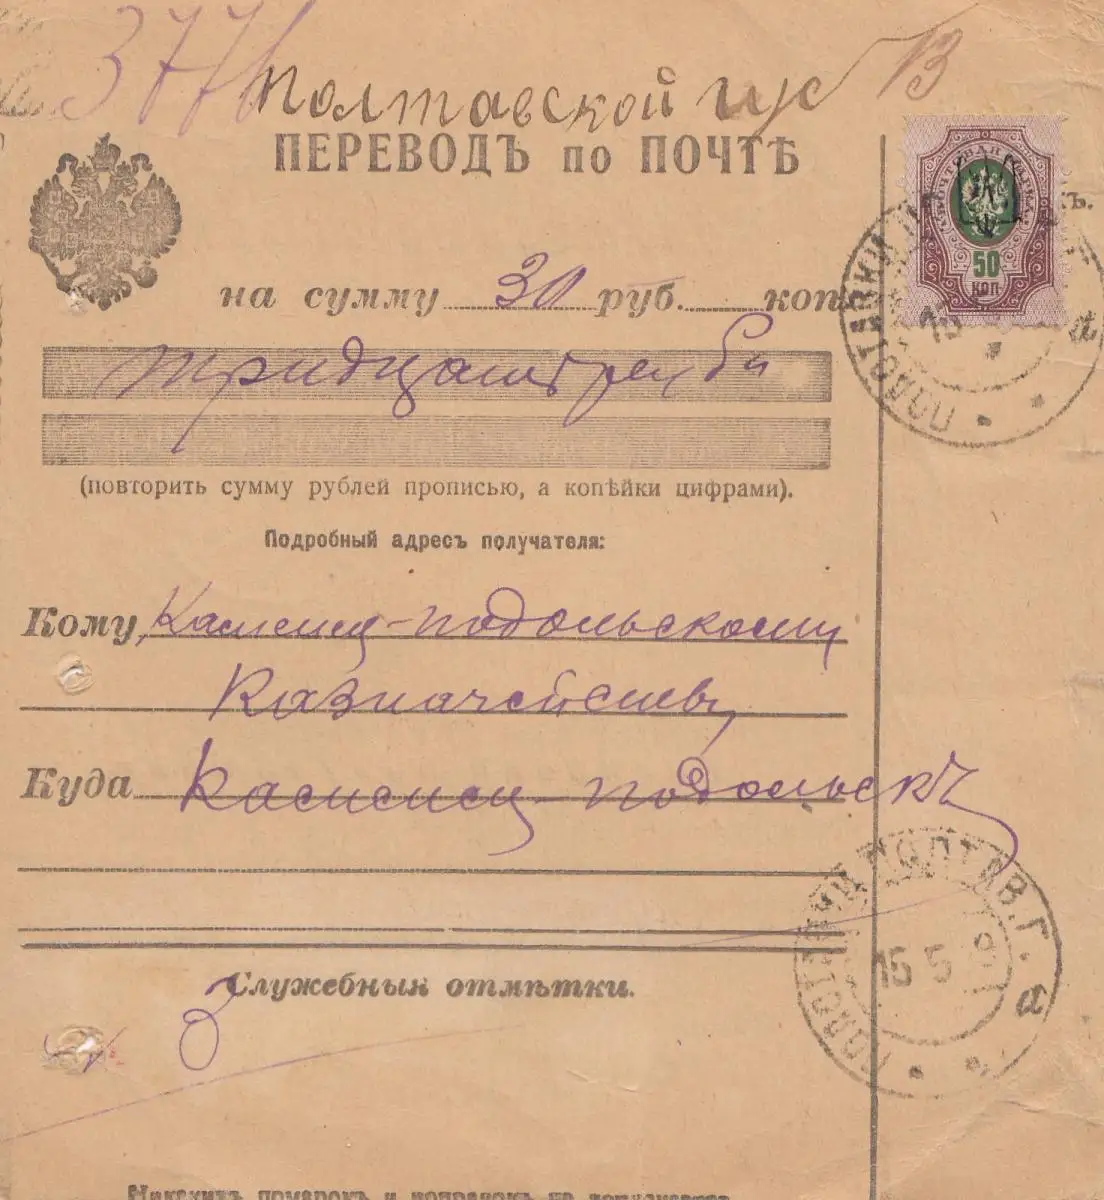 377
Полтавской губ
13
ПЕРЕВОДЪ по ПОЧТѢ
ПОЧТОВАЯ МАРКА
50
КОП
къ.
на сумму 30 руб. коп
тридцать рубл
(повторить сумму рублей прописью, а копѣйки цифрами).
Подробный адресъ получателя:
Кому, Каменец-подольскому
Казначейству
Куда Каменец-подольскъ
ПОЛТАВ. Г.
15 5
а
Служебныя отмѣтки.
Никакихъ помарокъ и поправокъ не допускается